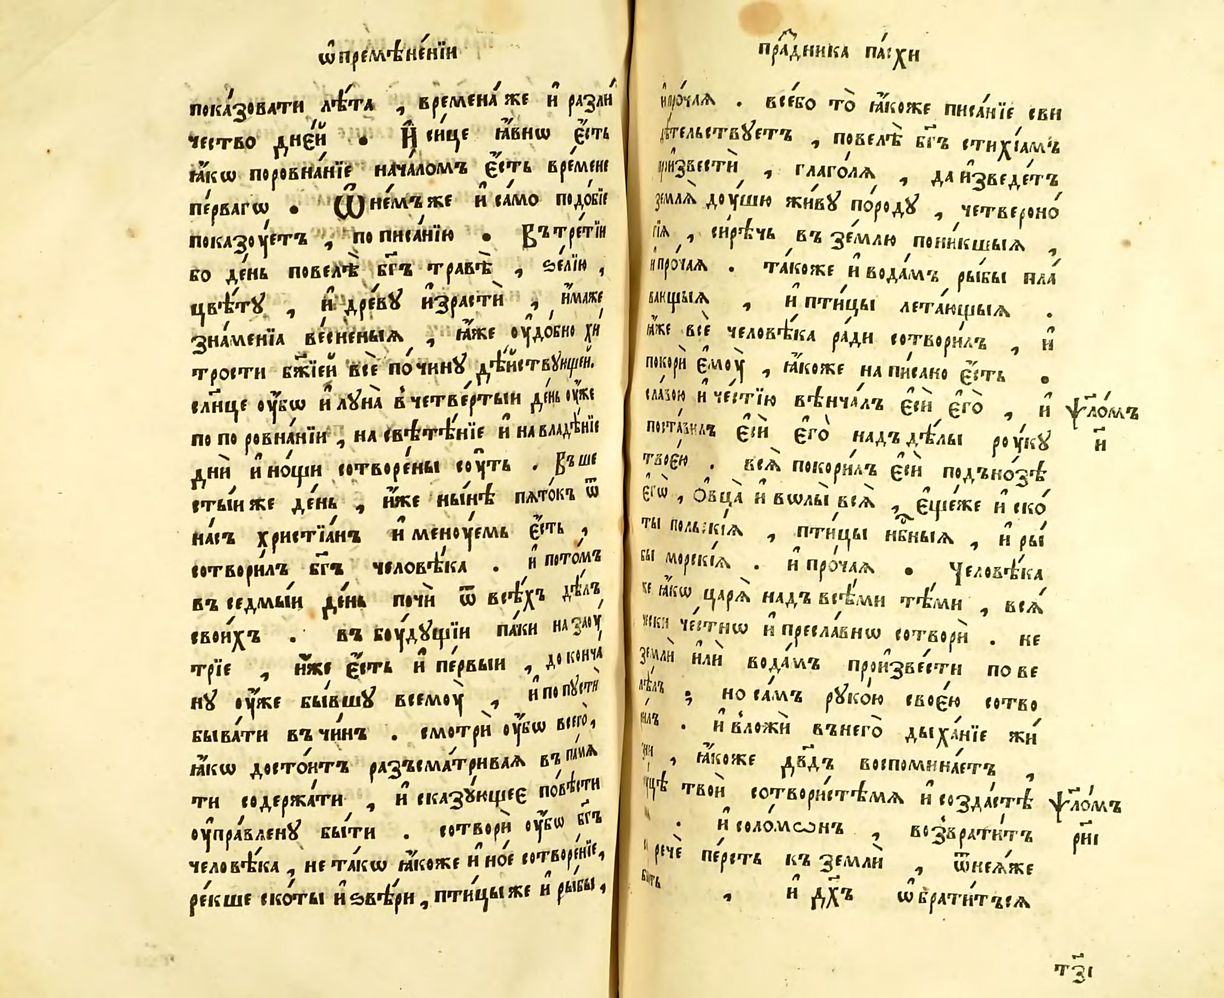 ѡ҆премѣне́нїи
пока́зовати лѣ́та , времена́же и҆ разли́
чество дне́й . И҆ си́це ꙗ҆́внѡ є҆́сть
ꙗ҆́кѡ поровна́нїе нача́ломъ є҆́сть вре́мене
пе́рвагѡ . Ѿне́мъже и҆ са́мо подо́бїе
показоу́етъ , пописа́нїю . Въ тре́тїи
бо де́нь повелѣ̀ бг҃ъ травѣ̀ , ѕе́лїю ,
цвѣ́ту , и҆ дре́ву и҆зрастѝ , и҆́маже
зна́менїа ве́сненыѧ , ꙗ҆́же оу҆до́бно хи́
трости бж҃їей всѐ по́чину дѣ́йствующей.
сл҃нце оу҆́бѡ и҆ луна̀ в̾четве́ртыи де́нь оу҆́же
попоровна́нїи , насвѣтѣ́нїе и҆ навладѣ́нїе
днѝ и҆ но́щи сотворе́ны соу́ть . Въ ше
сты́иже де́нь , и҆́же ны́нѣ пѧто́къ ѿ
на́съ христїа́нъ и҆меноу́емь є҆́сть ,
сотвори́лъ бг҃ъ человѣ́ка . и҆ пото́мъ
въ седмы́и де́нь почѝ ѿ всѣ́хъ дѣ́лъ
свои́хъ . въ боу́дущїи па́ки назаоу́
трїе , и҆́же є҆́сть и҆ пе́рвыи , доконча́
ну оу҆́же бы́вшу всемоу̀ , и҆ попустѝ
быва́ти въ чи́нъ . смотрѝ оу҆́бѡ всего̀,
ꙗ҆́кѡ досто́итъ разъсма́триваѧ въ па́мѧ
ти содержа́ти , и҆ сказу́ющеє по́вѣсти
оу҆пра́влену бы́ти . сотворѝ оу҆́бѡ бг҃ъ
человѣ́ка , не та́кѡ ꙗ҆́коже и҆но́е сотворе́нїе,
ре́кше ско́ты и҆ ѕвѣ́ри , пти́цыже и҆ ры́бы,
пра́здника па́схи
и҆про́чаѧ . всебо то̀ ꙗ҆́коже писа́нїе сви
дѣ́тельствуетъ , повелѣ̀ бг҃ъ стихі́амъ
произвестѝ , глаго́лѧ , да и҆зведе́тъ
землѧ̀ до у́шю жи́ву по́роду , четвероно́
гїѧ , си́рѣчь въ зе́млю пони́кшыѧ ,
и҆про́чаѧ . та́коже и҆ вода́мъ ры́бы пла́
вающыѧ , и҆ пти́цы лета́ющыѧ .
ꙗ҆́же всѐ человѣ́ка ра́ди сотвори́лъ , и҆
покорѝ є҆моу̀ , ꙗ҆́коже напи́сано є҆́сть .
сла́вою и҆ че́стїю вѣнча́лъ є҆сѝ є҆го̀ , и҆
поста́вилъ є҆сѝ є҆го̀ надъ дѣ́лы роу́ку
твоє́ю . всѧ̀ покори́лъ є҆сѝ подъно́зѣ
є҆гѡ̀ , ѻ҆́вца̀ и҆ вѡлы̀ всѧ̀ , є҆ще́же и҆ ско́
ты польскі́ѧ , пти́цы нб҃ныѧ , и҆ ры́
бы морскі́ѧ . и҆ про́чаѧ . Человѣ́ка
же ꙗ҆́кѡ царѧ̀ надъ всѣ́ми тѣ́ми , всѧ́
чески че́стнѡ и҆ пресла́внѡ сотворѝ . не
землѝ и҆лѝ вода́мъ произве́сти пове
лѣлъ ; но са́мъ руко́ю своє́ю сотво
рилъ . и҆ вложѝ в̾него̀ дыха́нїе жи́
зни , ꙗ҆́коже дв҃дъ воспомина́етъ ,
руцѣ твоѝ сотвори́стѣмѧ и҆ созда́стѣ
. и҆ соло́мѡнъ , воз̾врати́тъ
и речѐ пе́рсть къ землѝ , ѿнеѧ́же
бысть , и҆ дх҃ъ ѡ҆брати́тъсѧ
ѱало́мъ
и҃
ѱало́мъ
рн҃і
тз҃і